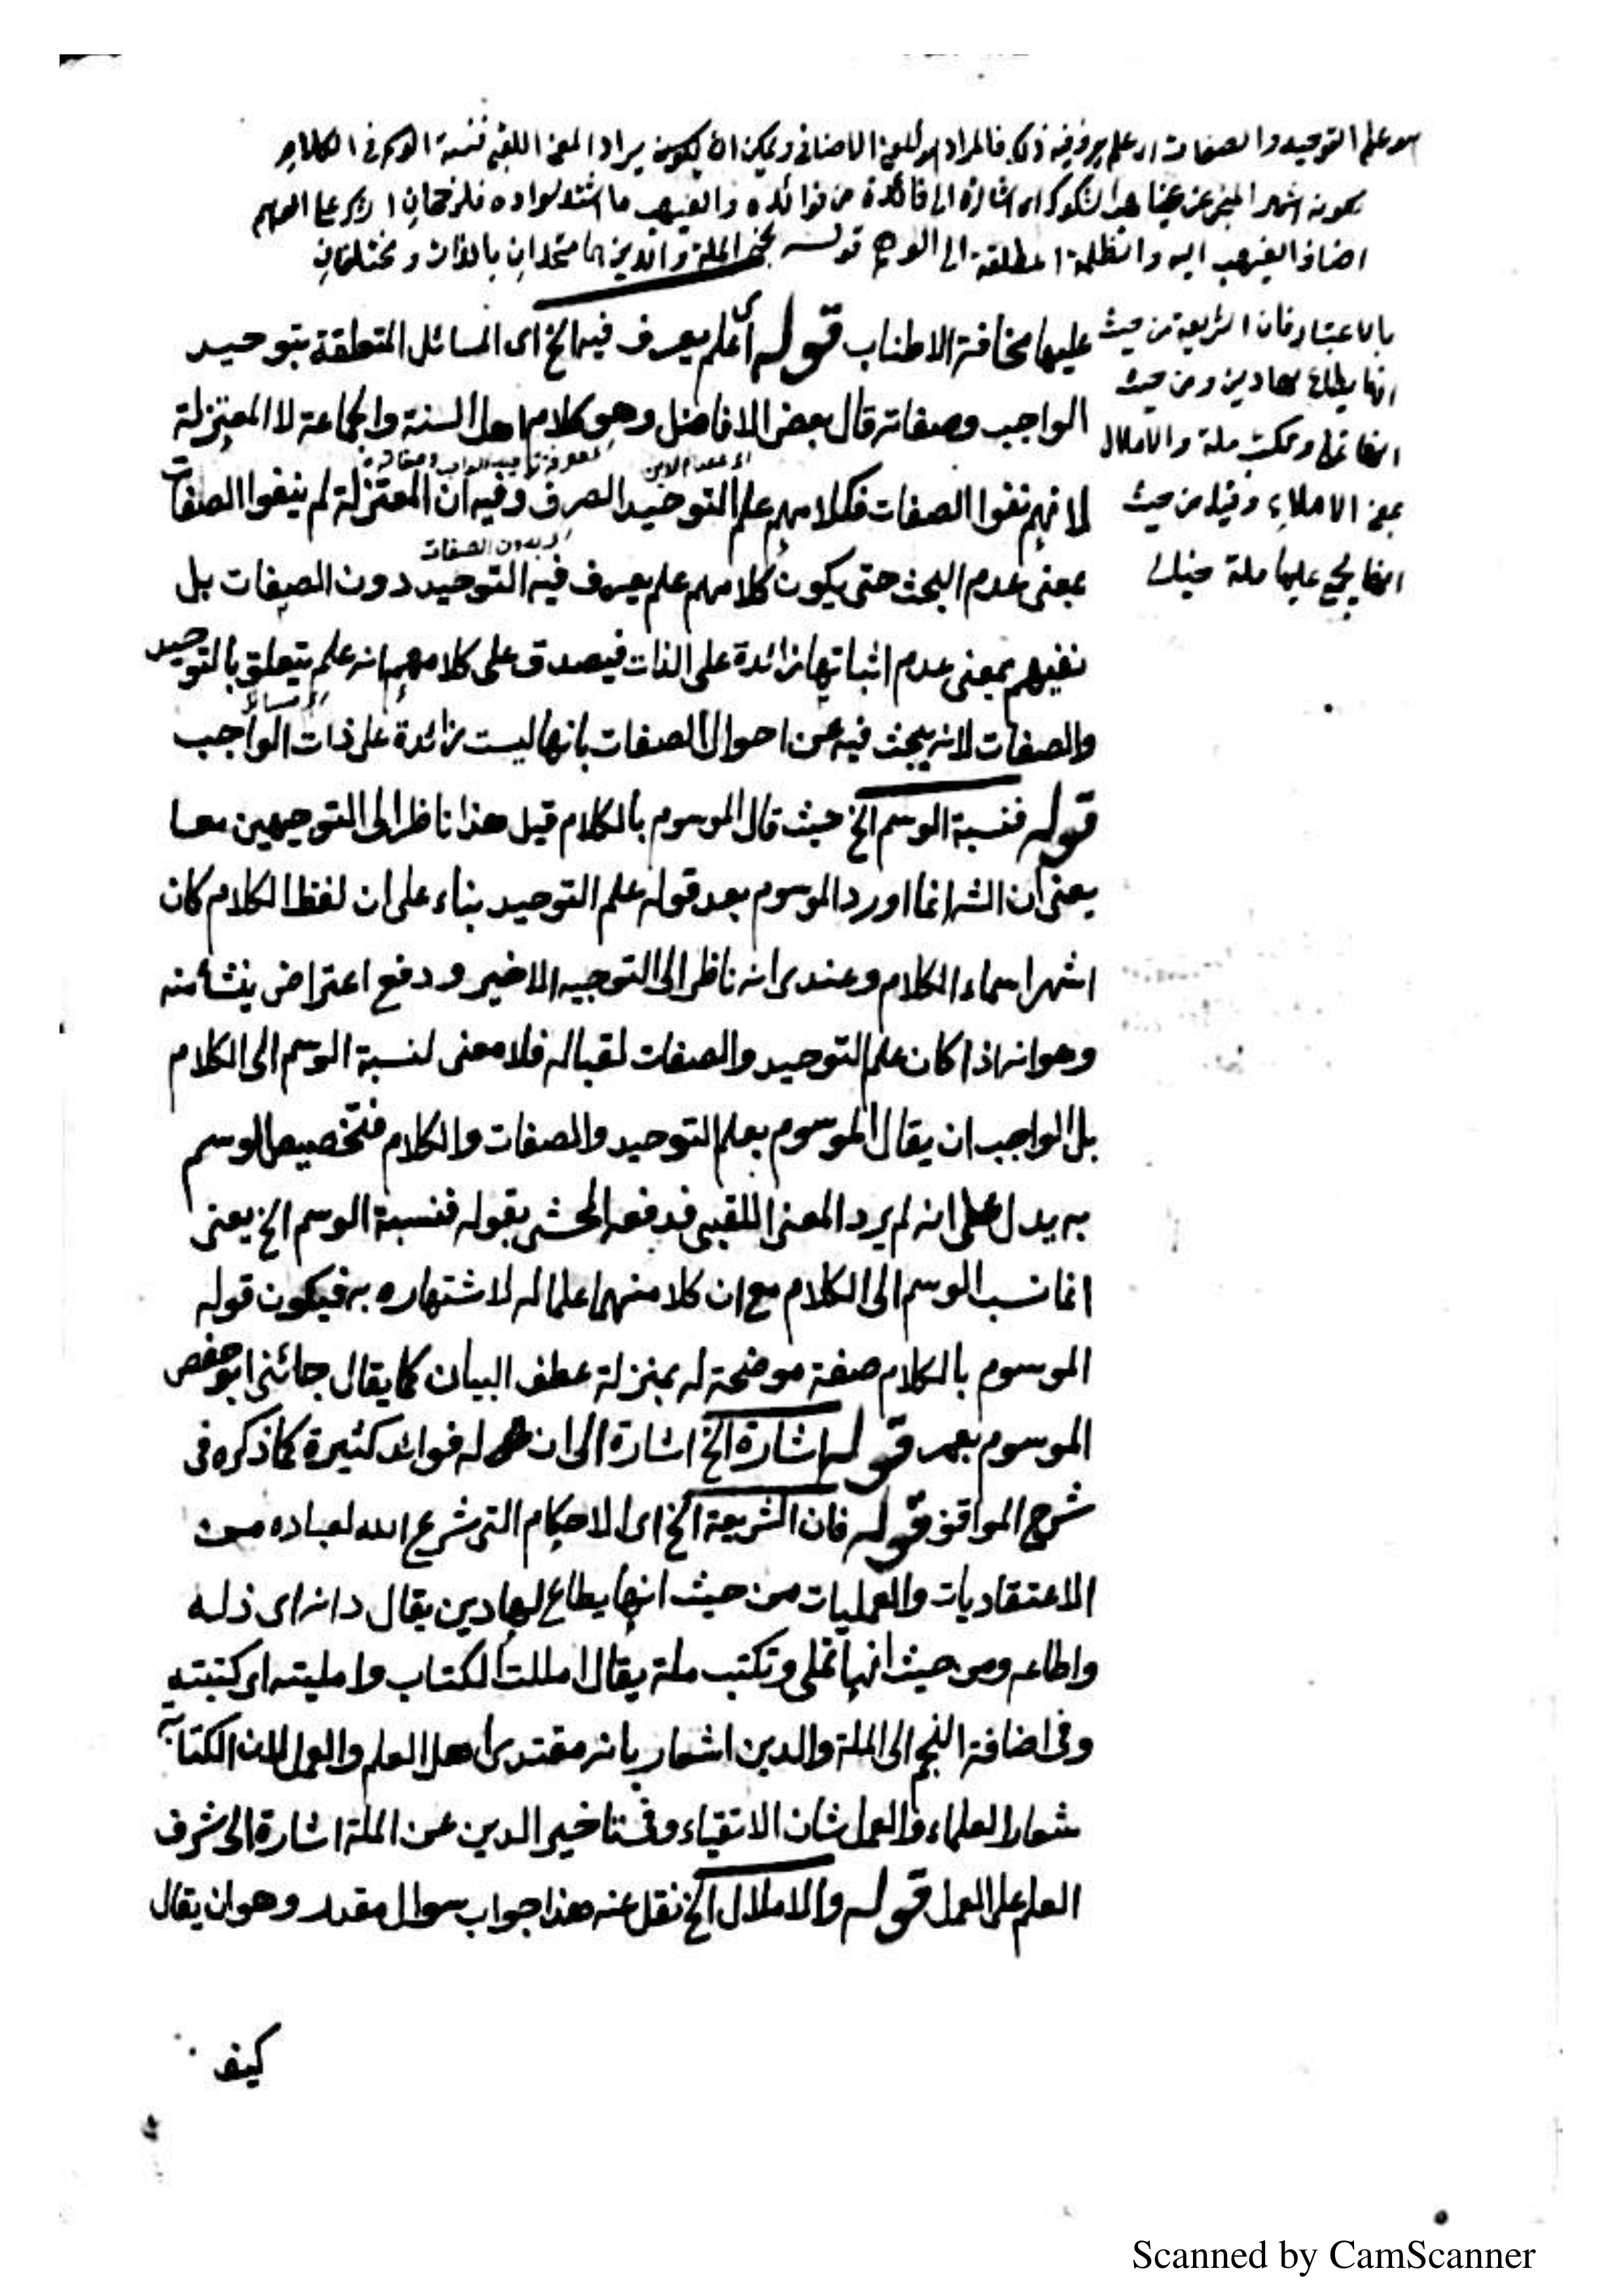 هو علم التوحيد والصفات اى علم يعرف فيه ذلك فالمراد هو المعنى الاضافى ويمكن ان يكون يراد المعنى اللقبى فنسبة الوسم الى الكلام
لكونه اشهر المنجى عن غياهب الشكوك اه اشارة الى فائدة من فوائده والغيهب ما اشتد سواده
اضافة الغيهب اليه والظلمة المطلقة الى الوهم قوله نجم الملة والدين هما متحدان بالذات ومختلفان
بالاعتبار فان الشريعة من حيث
انها يطاع لها دين ومن حيث
انها تملى وتكتب ملة والاملال
بمعنى الاملاء وقيل من حيث
انها يجمع عليها ملة
عليها مخافة الاطناب قوله اى علم يعرف فيه الخ اى المسائل المتعلقة بتوحيد
الواجب وصفاته قال بعض الافاضل وهو كلام اهل السنة والجماعة لا المعتزلة
لانهم نفوا الصفات فكلامهم علم التوحيد الصرف وفيه ان المعتزلة لم ينفوا الصفات
اى بدون الصفات
بمعنى عدم البحث حتى يكون كلامهم علم يعرف فيه التوحيد دون الصفات بل
نفيهم بمعنى عدم اثباتها زائدة على الذات فيصدق على كلامهم انه علم يتعلق بالتوحيد
والصفات لانه يبحث فيه عن احوال الصفات بانها ليست زائدة على ذات الواجب
قوله فنسبة الوسم الخ حيث قال الموسوم بالكلام قيل هذا ناظر الى التوجيهين معا
يعنى ان الشه انما اورد الموسوم بعد قوله علم التوحيد بناء على ان لفظ الكلام كان
اشهر اسماء الكلام وعندى انه ناظر الى التوجيه الاخير ودفع اعتراض ينشأ منه
وهو انه اذا كان علم التوحيد والصفات لقبا له فلا معنى لنسبة الوسم الى الكلام
بل الواجب ان يقال الموسوم بعلم التوحيد والصفات والكلام فتخصيص الوسم
به يدل على انه لم يرد المعنى اللقبى فدفعه المحشى بقوله فنسبة الوسم الخ يعنى
انما نسب الوسم الى الكلام مع ان كلا منهما علما له لاشتهاره به فيكون قوله
الموسوم بالكلام صفة موضحة له بمنزلة عطف البيان كما يقال جائنى ابو حفص
الموسوم بعمر قوله اشارة الخ اشارة الى ان له فوائد كثيرة كما ذكره فى
شرح المواقف قوله فان الشريعة الخ اى الاحكام التى شرع الله لعباده من
الاعتقاديات والعمليات من حيث انها يطاع لها دين يقال دانه اى ذله
واطاعه ومن حيث انها تملى وتكتب ملة يقال امللت الكتاب وامليته اى كتبته
وفى اضافة النجم الى الملة والدين اشعار بانه مقتدى اهل العلم والعمل لان الكتابة
شعار العلماء والعمل شان الاتقياء وفى تاخير الدين عن الملة اشارة الى شرف
العلم على العمل قوله والاملال الخ نقل عنه هذا جواب سوال مقدر وهو ان يقال
كيف
Scanned by CamScanner